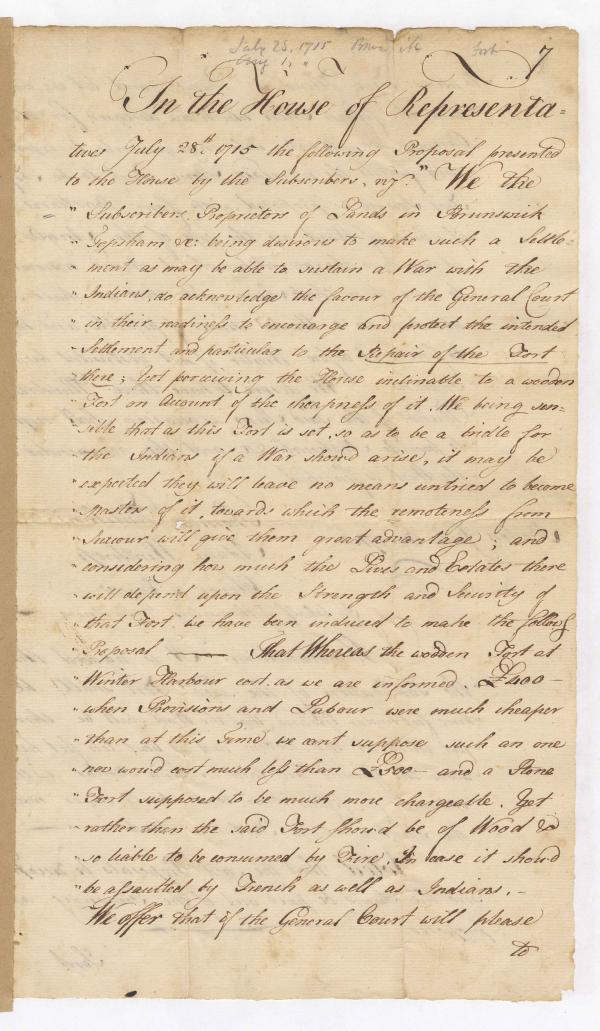 July 28, 1715 Fort
7
In the House of Representa=
tives July 28th. 1715 the following Proposal presented
to the House by the Subscribers, viz. " We the
" Subscribers, Proprietors of Lands in Brunswick
" Topsham &c: being desirous to make such a Settle-
" ment as may be able to sustain a War with the
" Indians, do acknowledge the favour of the General Court
" in their readiness to encourge and protect the intended
" Settlement and particular to the Repair of the Fort
" there; Yet perceiving the House inclinable to a wooden
" Fort on Account of the cheapness of it. We being sen=
" sible that as this Fort is set, so as to be a bridle for
" the Indians if a War should arise, it may be
" expected they will leave no means untried to become
" Masters of it, towards which the remoteness from
" Succour will give them great advantage; and
" considering how much the Lives and Estates there
" will depend upon the Strength and Security of
" that Fort, we have been induced to make the follows
" Proposal —— That Whereas the wodden Fort at
" Winter Harbour cost, as we are informed, £400—
" when Provisions and Labour were much cheaper
" than at this Time, we cant suppose such an one
" now wou'd cost much less than £500— and a Stone
" Fort supposed to be much more chargeable. Yet
" rather then the said Fort shou'd be of Wood &
" so liable to be consumed by Fire, In case it shou'd
" be assaulted by French as well as Indians.—
" We offer that if the General Court will please
to